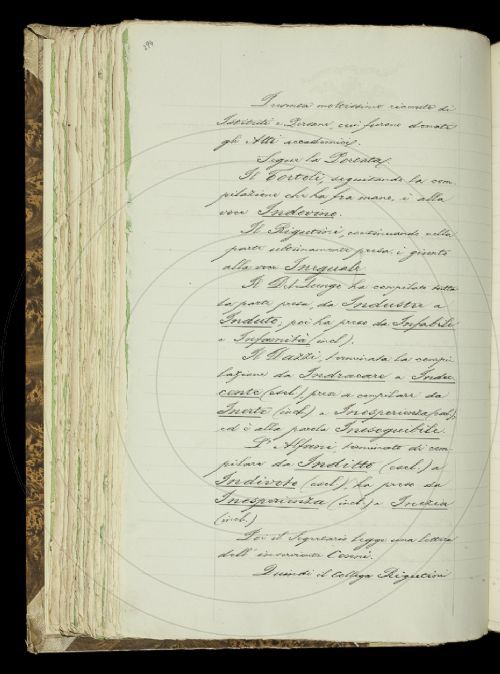 294
Diverse moltissime ricevute di
Istituti e Persone, cui furono donati
gli Atti accademici.
Segue la Portata.
Il Tortoli, seguitando la com-
pilazione che ha fra mano, è alla
voce Indovino.
Il Rigutini, continuando nella
parte ultimamente presa, è giunto
alla voce Ineguale.
Il Del Lungo ha compilato tutta
la parte presa, da Industre a
Induto; poi ha preso da Infabile
a Infamità (incl.).
Il Dazzi, terminata la compi-
lazione da Indracare a Indu-
cente (escl.) prese a compilare da
Inerte (incl.) a Inesperienza (escl.),
ed è alla parola Ineseguibile.
L'Alfani, terminato di com-
pilare da Inditto (escl.) a
Indivoto (escl.), ha preso da
Inesperienza (incl.) a Inezia
(incl.)
Poi il Segretario legge una lettera
dell'inserviente Cosini.
Quindi il Collega Rigutini